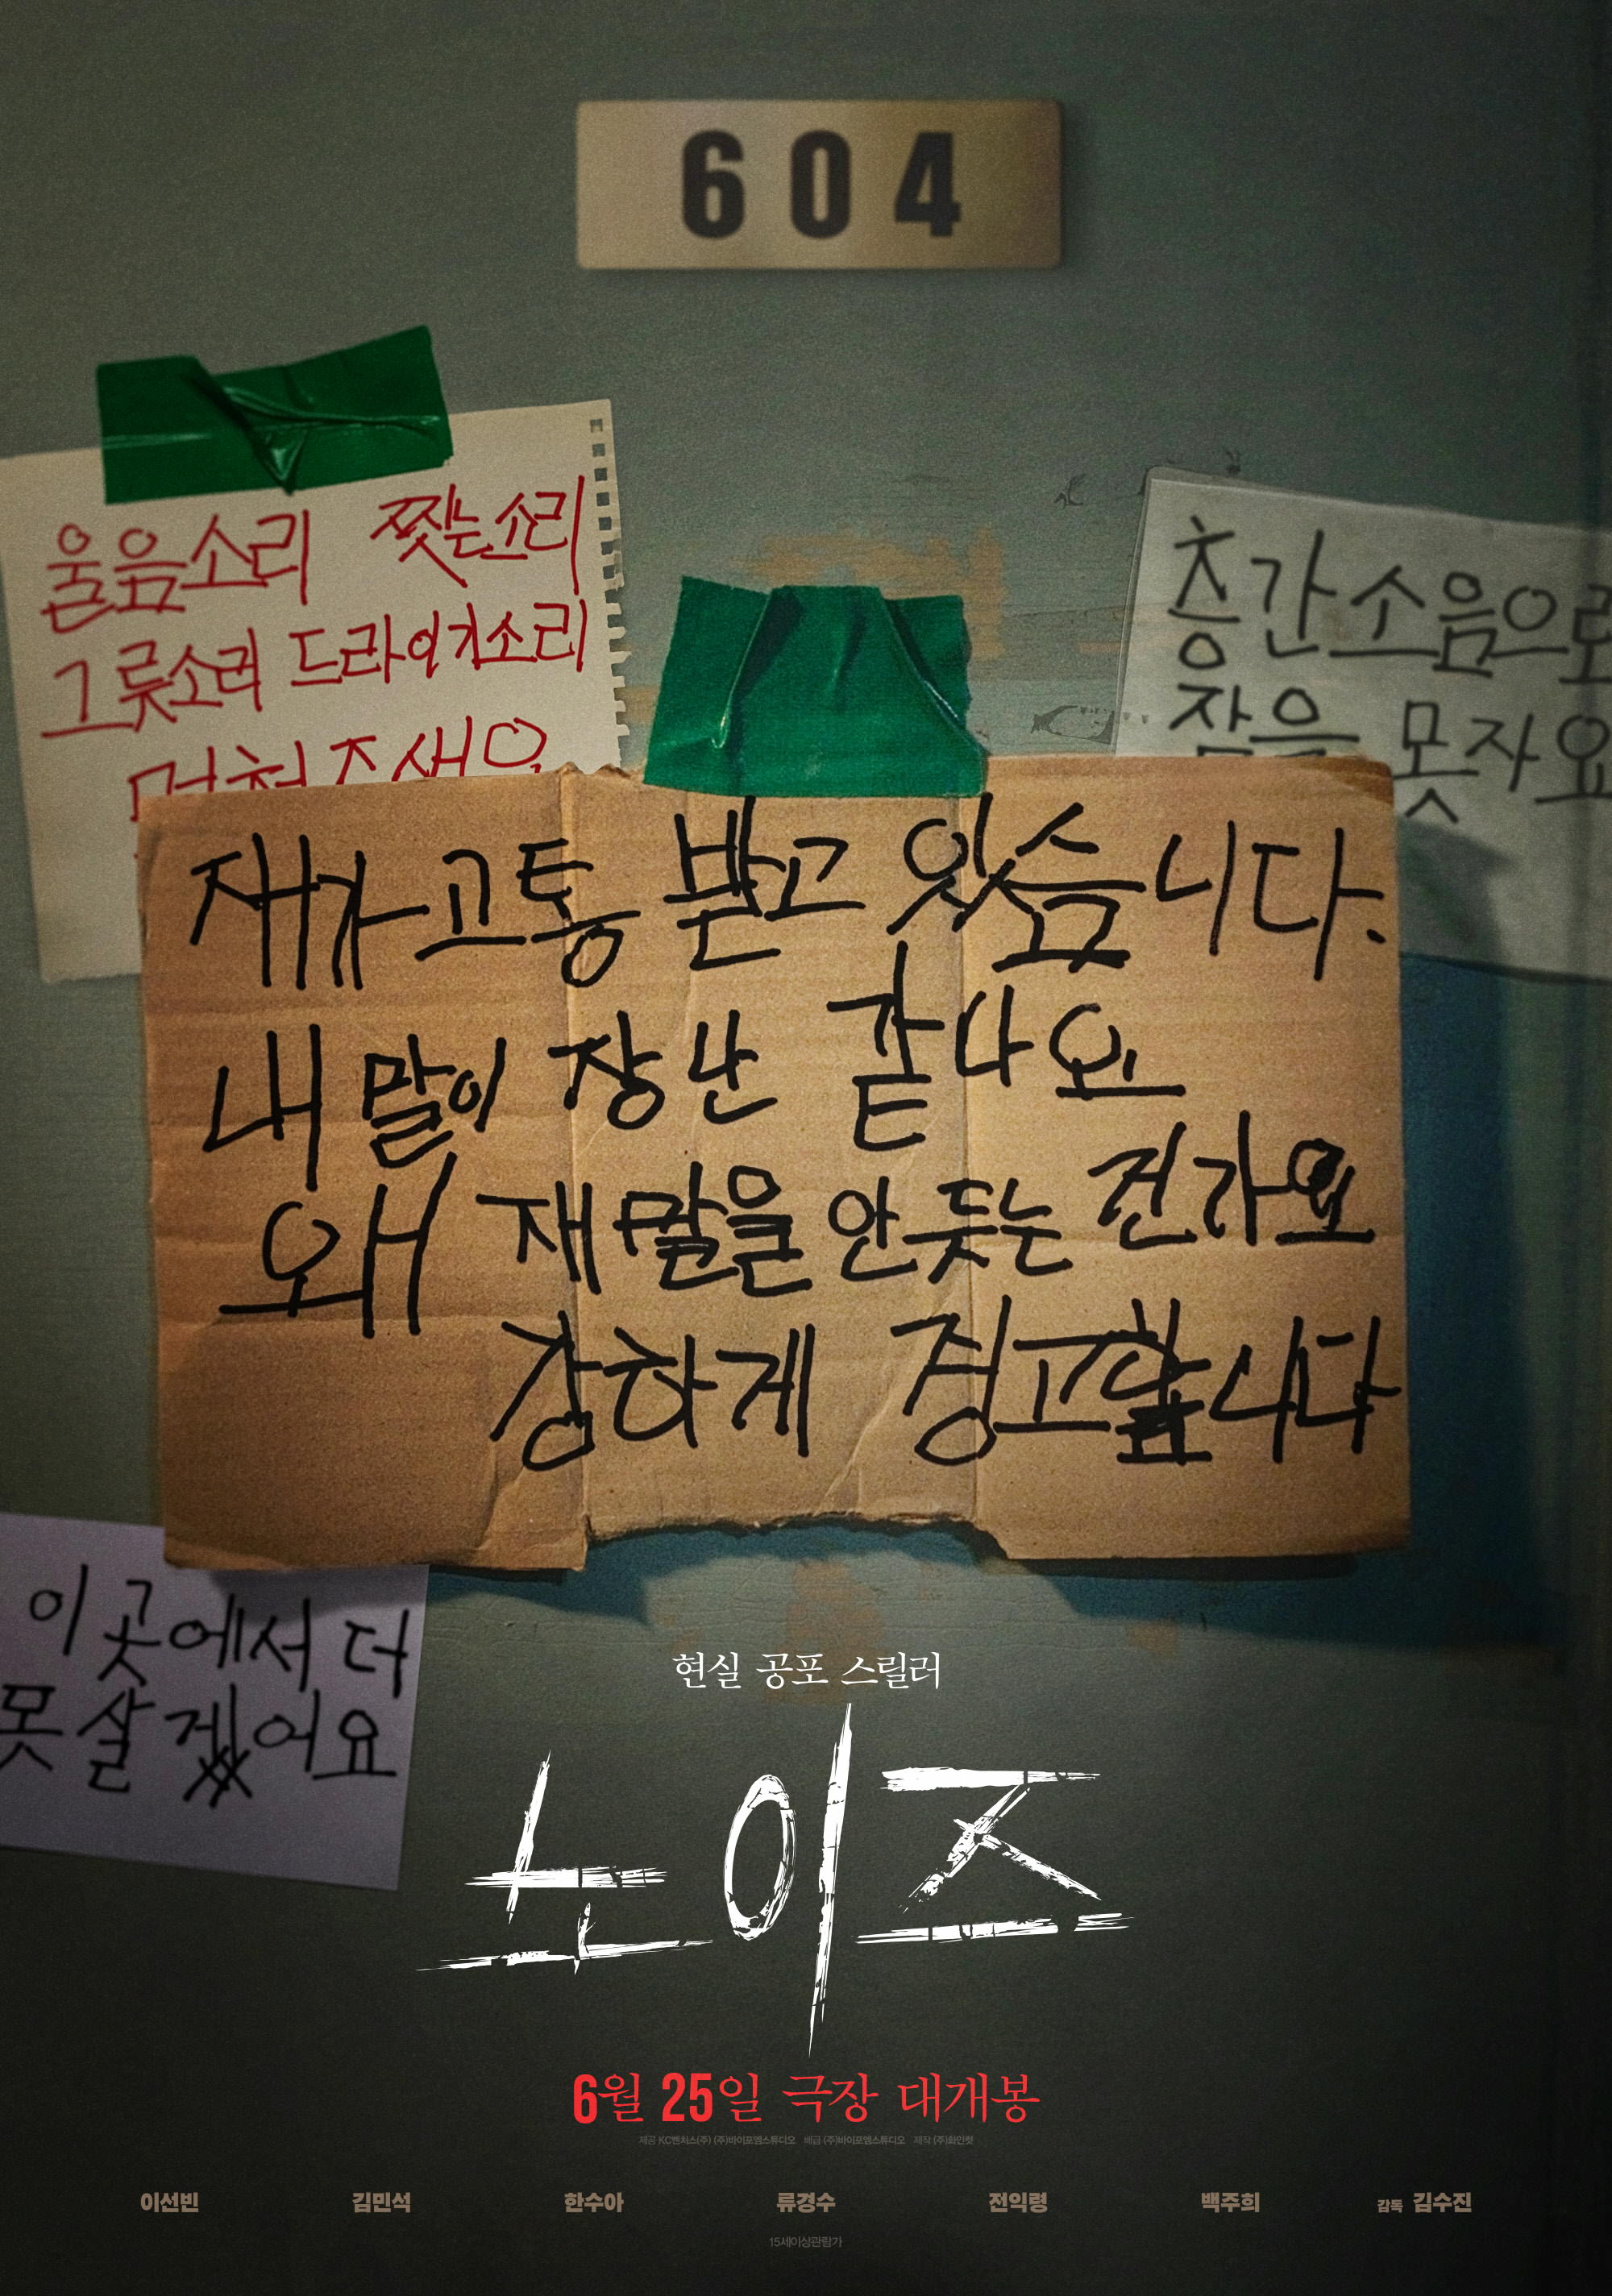 604
울음소리 찢는소리
그릇소리 드라이기소리
멈춰주세요
층간소음으로
잠을 못자요
재가 고통 받고 있습니다.
내 말이 장난 같나요
왜 재 말을 안듯는 건가요
강하게 경고합니다
이곳에서 더
못살겠어요
현실 공포 스릴러
노이즈
6월 25일 극장 대개봉
제공 KC벤처스(주) (주)바이포엠스튜디오 배급 (주)바이포엠스튜디오 제작 (주)화인컷
이선빈 김민석 한수아 류경수 전익령 백주희 감독 김수진
15세이상관람가